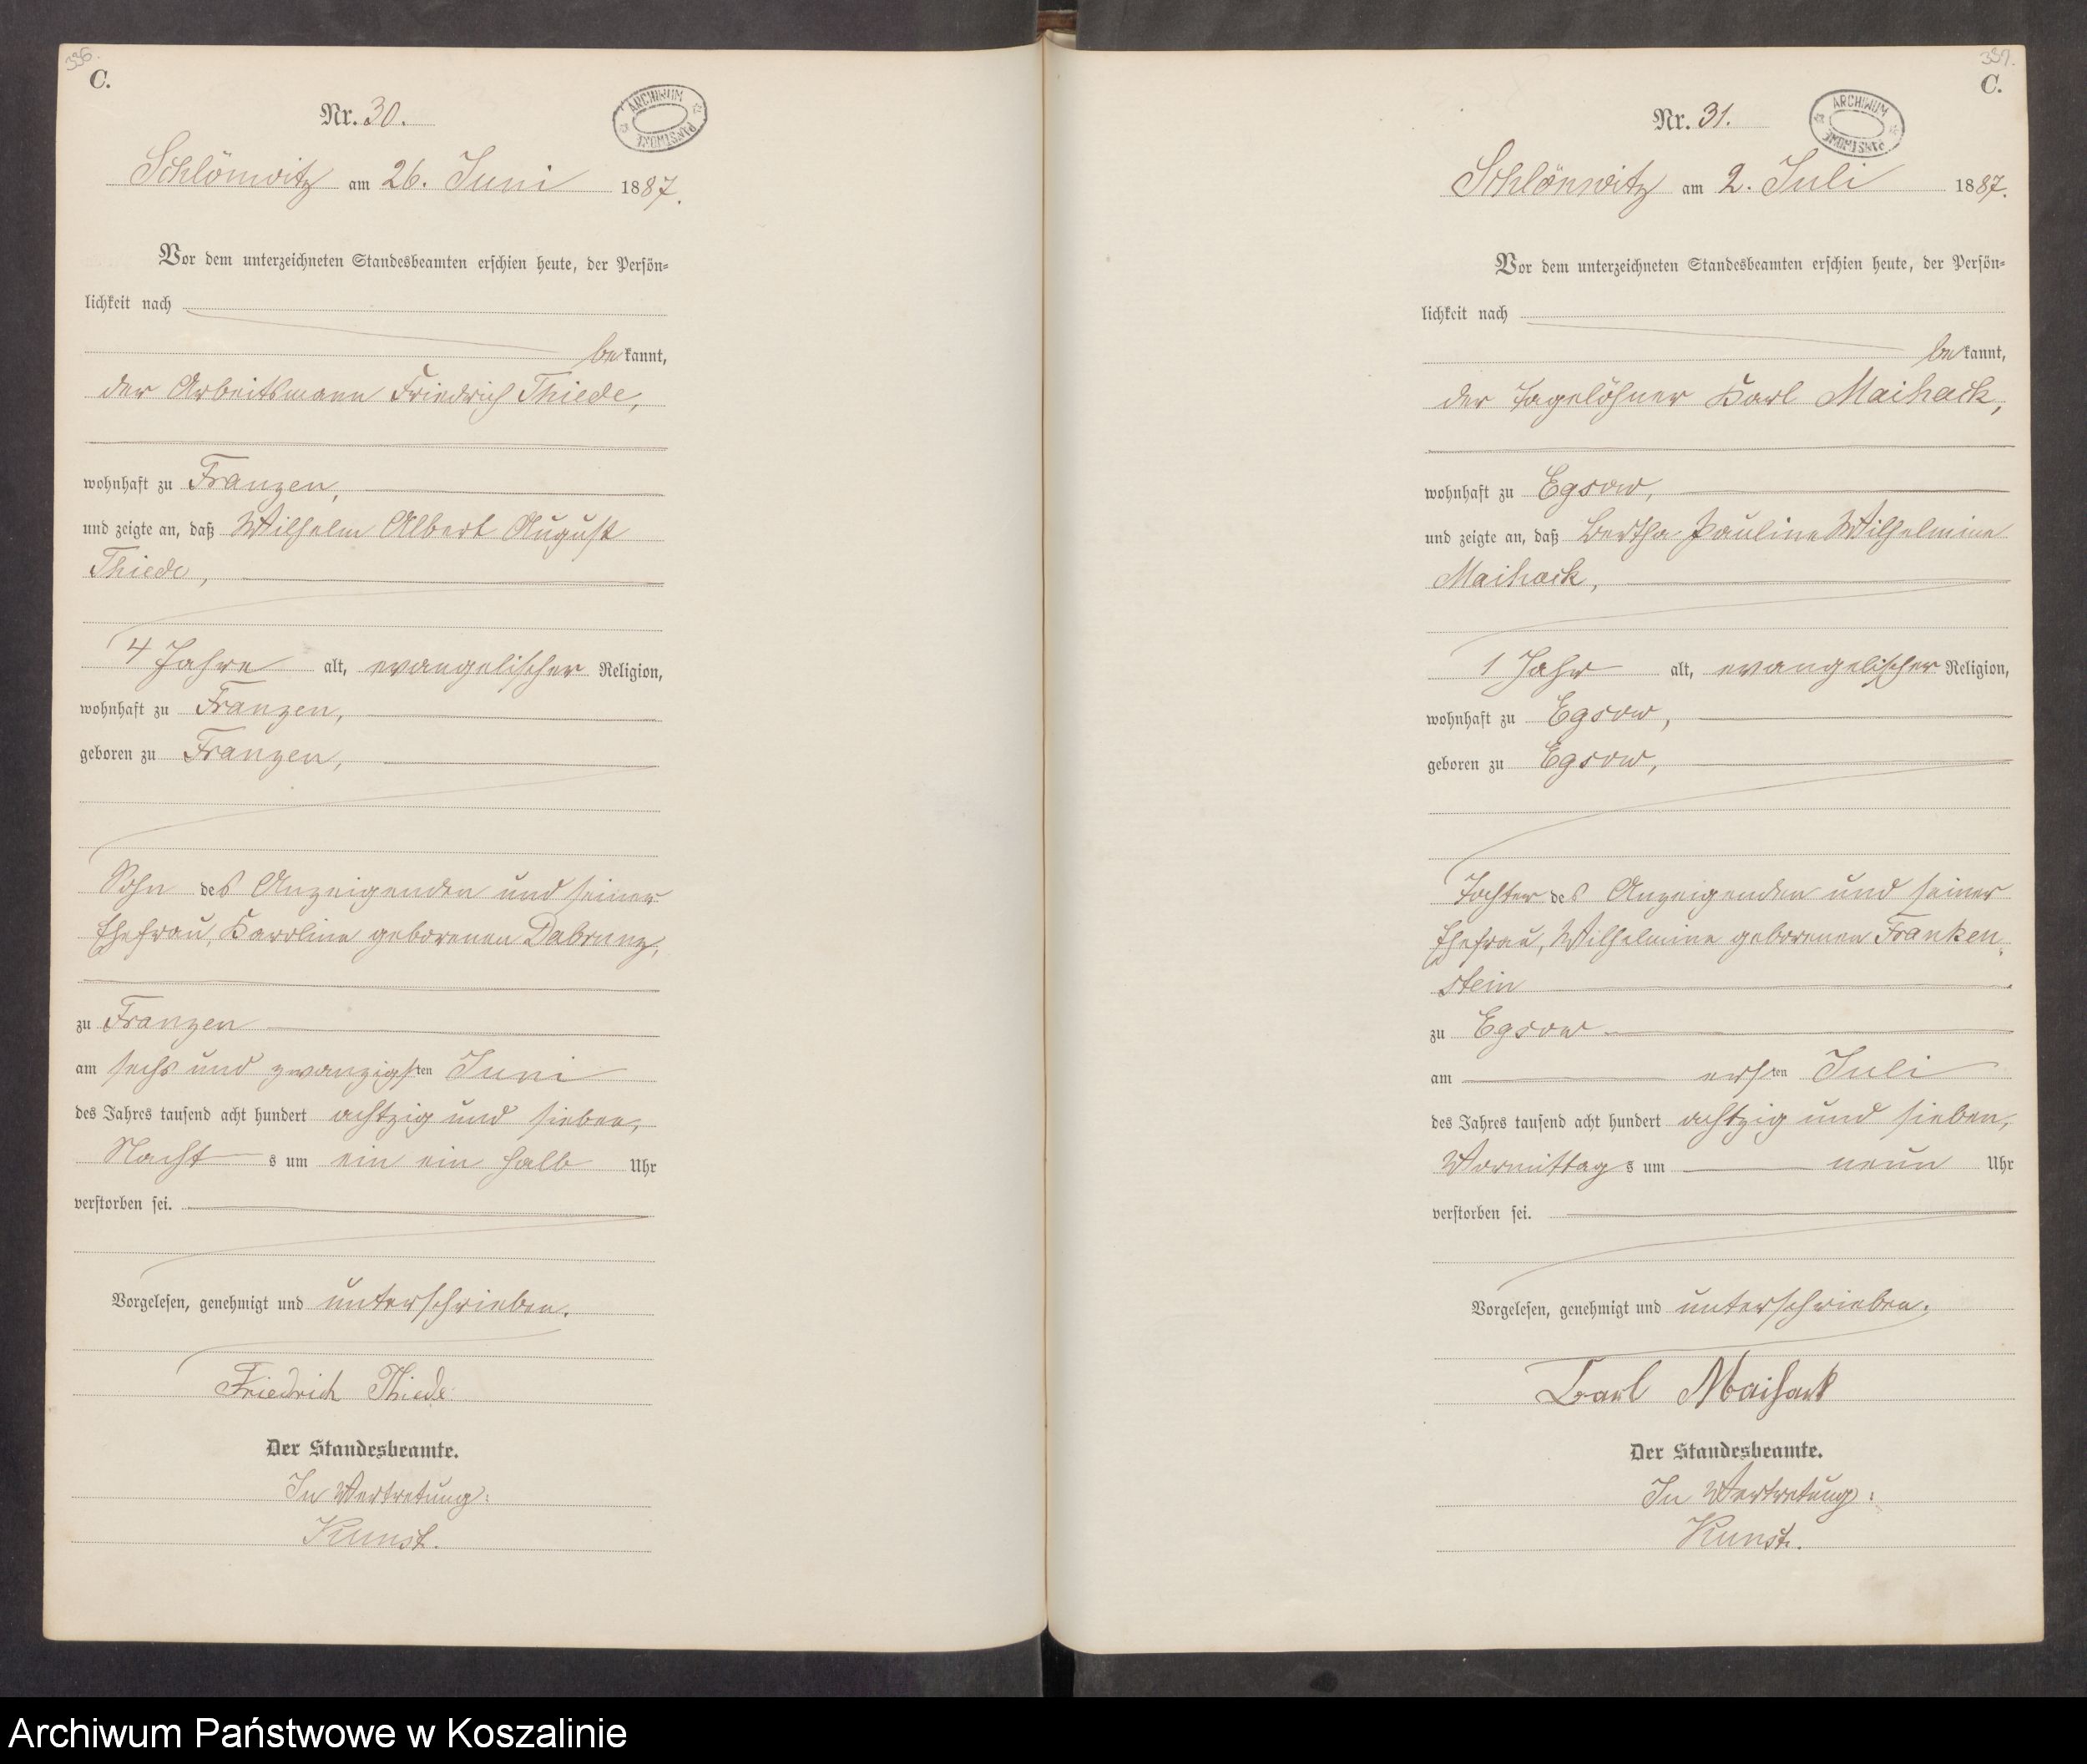 336.
C.
Nr. 30.
ARCHIWUM PAŃSTWOWE
Schlönwitz am 26. Juni 1887.
Vor dem unterzeichneten Standesbeamten erschien heute, der Persön-
lichkeit nach
bekannt,
der Arbeitsmann Friedrich Thiede,
wohnhaft zu Franzen,
und zeigte an, daß Wilhelm Albert August
Thiede,
4 Jahre alt, evangelischer Religion,
wohnhaft zu Franzen,
geboren zu Franzen,
Sohn des Anzeigenden und seiner
Ehefrau, Karoline geborenen Dabrunz,
zu Franzen
am sechs und zwanzigsten Juni
des Jahres tausend acht hundert achtzig und sieben,
Nachts um ein ein halb Uhr
verstorben sei.
Vorgelesen, genehmigt und unterschrieben.
Friedrich Thiede
Der Standesbeamte.
In Vertretung:
Kunst.
337.
C.
Nr. 31.
ARCHIWUM PAŃSTWOWE
Schlönwitz am 2. Juli 1887.
Vor dem unterzeichneten Standesbeamten erschien heute, der Persön-
lichkeit nach
bekannt,
der Tagelöhner Karl Maihack,
wohnhaft zu Egsow,
und zeigte an, daß Bertha Pauline Wilhelmine
Maihack,
1 Jahr alt, evangelischer Religion,
wohnhaft zu Egsow,
geboren zu Egsow,
Tochter des Anzeigenden und seiner
Ehefrau, Wilhelmine geborenen Franken-
stein
zu Egsow
am ersten Juli
des Jahres tausend acht hundert achtzig und sieben,
Vormittags um neun Uhr
verstorben sei.
Vorgelesen, genehmigt und unterschrieben.
Carl Maihack
Der Standesbeamte.
In Vertretung:
Kunst.
Archiwum Państwowe w Koszalinie